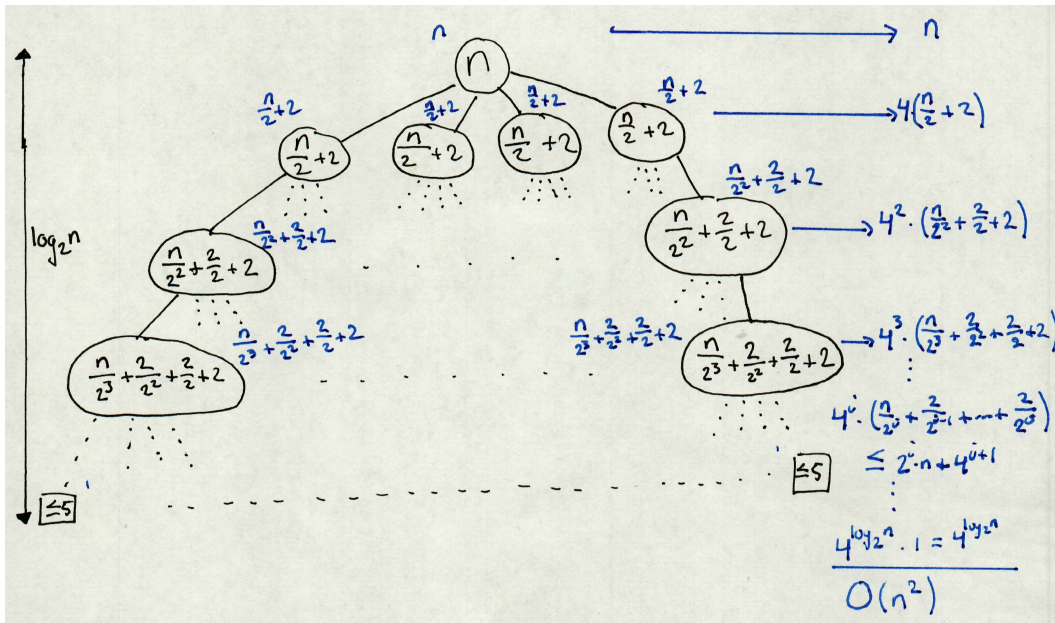 n → n
n
n/2+2 n/2+2 n/2+2 n/2+2
n/2+2 n/2+2 n/2+2 n/2+2 → 4·(n/2+2)
n/2²+2/2+2
n/2²+2/2+2 → 4²·(n/2²+2/2+2)
log₂n
n/2²+2/2+2
n/2²+2/2+2
n/2³+2/2²+2/2+2 n/2³+2/2²+2/2+2
n/2³+2/2²+2/2+2 → 4³·(n/2³+2/2²+2/2+2)
n/2³+2/2²+2/2+2
4ʲ·(n/2ʲ+2/2ʲ⁻¹+...+2/2⁰)
≤ 2ʲ·n+4ʲ⁺¹
≤5
≤5
4^log₂n · 1 = 4^log₂n
O(n²)